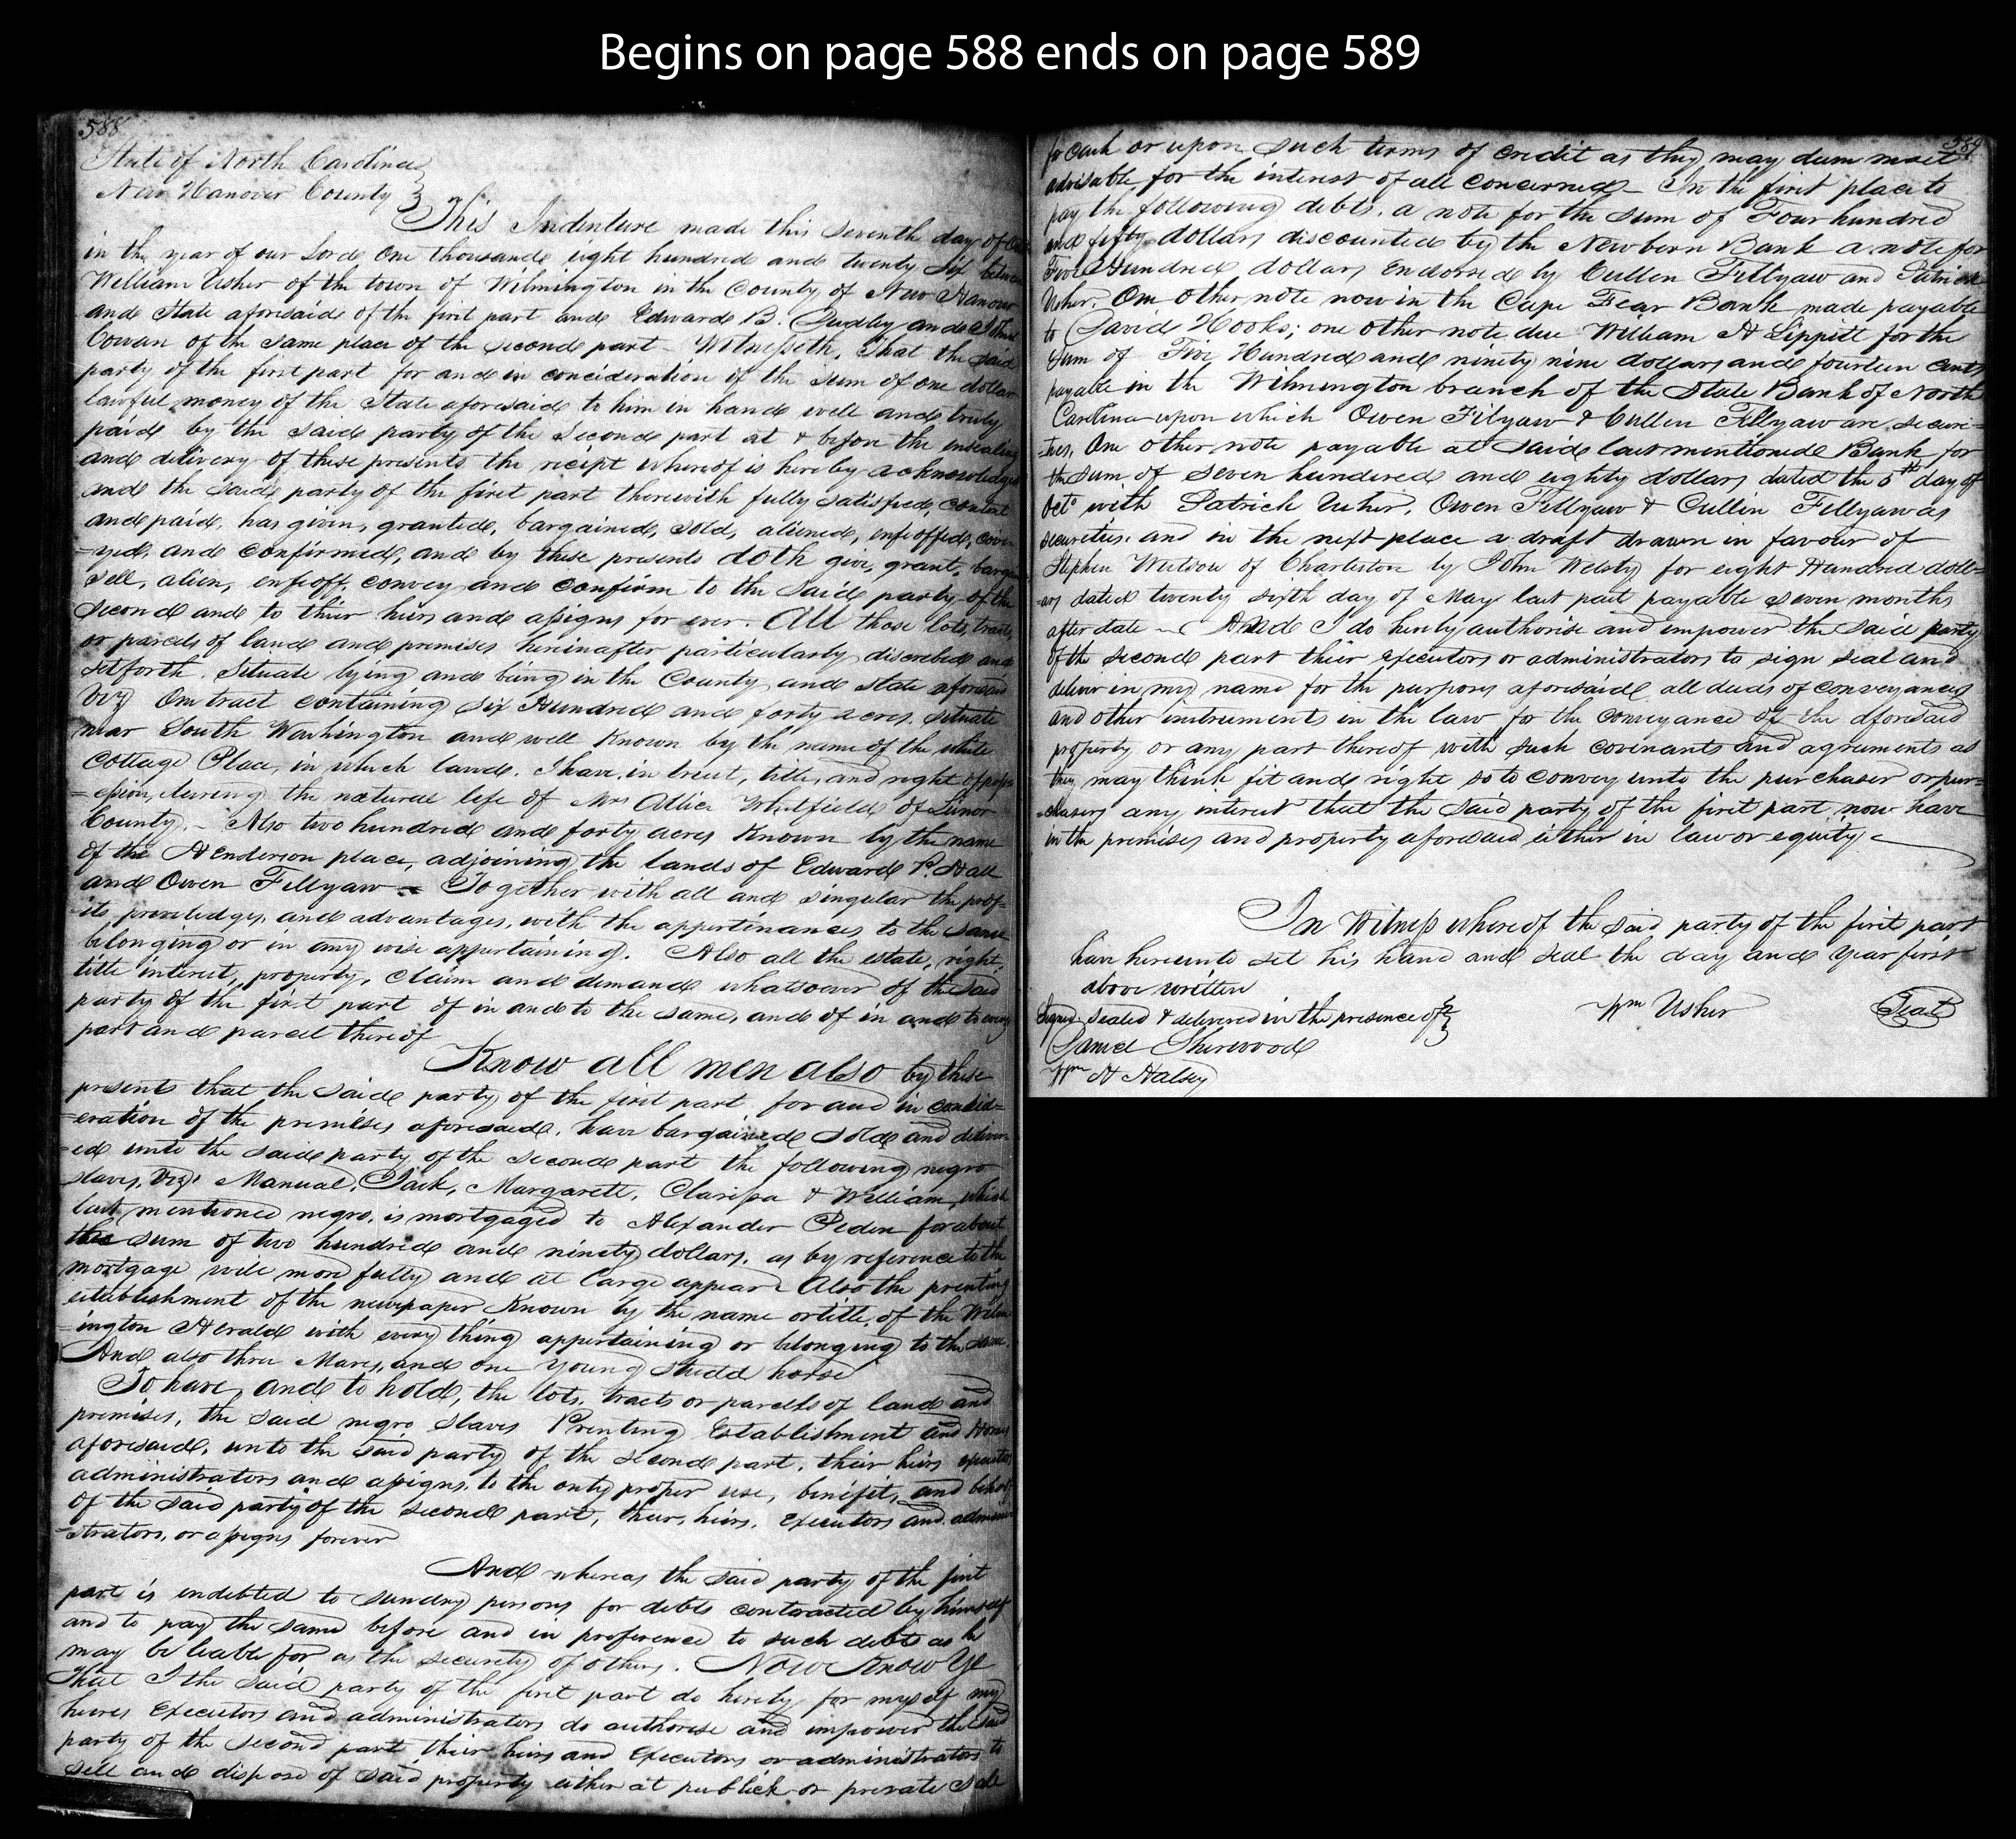 Begins on page 588 ends on page 589
588
State of North Carolina
New Hanover County
This Indenture made this seventh day of
in the year of our Lord One thousand eight hundred and twenty six between
William Usher of the town of Wilmington in the County of New Hanover
and State aforesaid of the first part and Edward B. Dudley and
Cowan of the same place of the second part Witnesseth, That the said
party of the first part for and in concideration of the sum of one dollar
lawful money of the State aforesaid to him in hand well and truly
paid by the said party of the Second part at & before the ensealing
and delivery of these presents the recipt whereof is hereby acknowledged
and the said party of the first part therewith fully satisfied, content
and paid, has given, granted, bargained, sold, aliened, enfeoffed, conv
=eyed, and confirmed, and by these presents doth give, grant, bargain
sell, alien, enfeoff, convey and confirm to the said party of the
second and to their hiers and assigns for ever. All those lots, tracts,
or parcels of land and premises hereinafter particularly discribed and
setforth. Situate lying and being in the County and state aforesaid
Viz One tract containing Six Hundred and forty acres. situate
near South Washington and well Known by the name of the white
Cottage Place, in which land. I have, in trust, title, and right of poss
=ession, during the natural life of Mrs Allice Whitfield of Linor
County.- Also two hundred and forty acres Known by the name
of the Henderson place, adjoining the lands of Edward P. Hall
and Owen Fillyaw - Together with all and singular the prof-
-its priviledges, and advantages, with the appertinances to the same
belonging or in any wise appertaining. Also all the estate, right,
title interest, property, claim and demand whatsoever of the said
party of the first part of in and to the same, and of in and to every
part and parcel thereof
Know all men also by these
presents that the said party of the first part for and in consid=
=eration of the premises aforesaid, have bargained sold and deliver
=ed unto the said party of the second part the following negro
slaves, Viz: Manual, Jack, Margarett, Clarissa & William, which
last mentioned negro, is mortgaged to Alexander Peden for about
the sum of two hundred and ninety dollars, as by reference to the
mortgage will more fully and at large appear Also the prenting
establishment of the newspaper Known by the name or title, of the Wilm
=ington Herald with every thing appertaining or belonging to the same.
And also three Mares, and one young studd horse
To have, and to hold, the lots, tracts or parcels of land and
premises, the said negro slaves Prenting Establishment and Horses
aforesaid, unto the said party of the second part, their hiers executors
administrators and assigns, to the only proper use, benifit, and behoof
of the said party of the second part, their, hiers, Executors and admini
=strators, or assigns forever
And whereas the said party of the first
part is endebted to sundry persons for debts contracted by himself
and to pay the same before and in preference to such debts as he
may be leable for as the security of others. Now Know Ye
That I the said party of the first part do hereby for myself my
heires Executors and administrators do authorise and impower the said
party of the second part, their hiers and Executors or administrators to
sell and dispose of said property either at publick or private sale
589
for cash or upon such terms of credit as they may deem most
advisable for the interest of all concerned - In the first place to
pay the following debts, a note for the sum of Four hundred
and fifty dollars discounted by the Newbern Bank a note for
Five Hundred dollars Endorsed by Cullen Fillyaw and Patrick
Usher. One other note now in the Cape Fear Bank made payable
to David Hooks; one other note due William H Lippitt for the
Sum of Five Hundred and ninety nine dollars and fourteen cents
payable in the Wilmington branch of the State Bank of North
Carolina upon which Owen Filyaw & Cullen Fillyaw are securi=
=ties, One other note payable at said last mentioned Bank for
the sum of seven hundered and eighty dollars dated the 5th day of
Octo with Patrick Usher, Owen Fillyaw & Cullin Fillyaw as
securities. and in the next place a draft drawn in favour of
Stephen of Charleston by John for eight Hundred doll=
=ars dated twenty sixth day of May last past payable seven months
after date - And I do hereby authorise and empower the said party
of the second part their executors or administrators to sign seal and
deliver in my name for the purposes aforesaid all deeds of conveyances
and other instruments in the law for the conveyance of the aforesaid
property or any part thereof with such covenants and agreements as
they may think fit and right so to convey unto the purchaser or pur=
=chasers any interest that the said party of the first part now have
in the premises and property aforesaid either in law or equity
In Witness whereof the said party of the first part
have hereunto set his hand and seal the day and year first
above written
Signed. sealed & delivered in the presence of
Wm Usher
Seal
Daniel Sherwood
Wm H Halsey